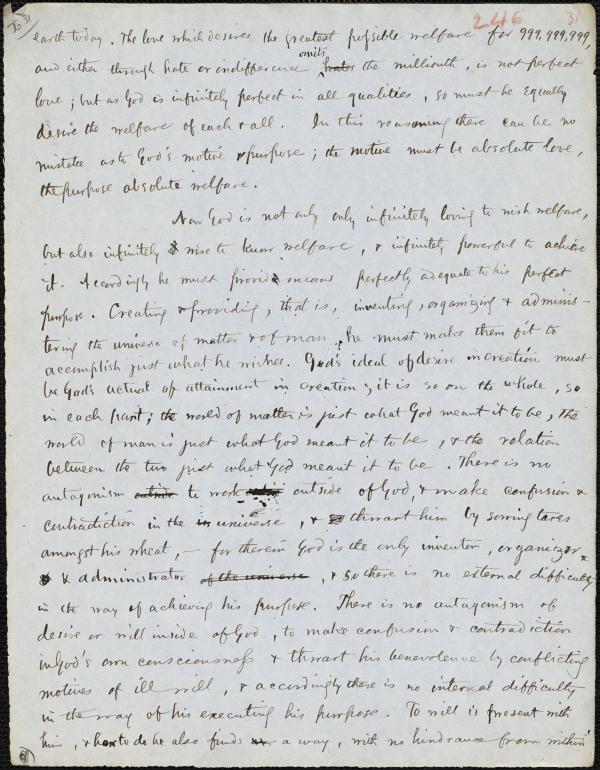 To 31
246
31
earth today. The love which desires the greatest possible welfare for 999,999,999,
omits
and either through hate or indifference hates the millionth, is not perfect
love; but as God is infinitely perfect in all qualities, so must he equally
desire the welfare of each & all. In this reasoning there can be no
mistake as to God's motive & purpose; the motive must be absolute love,
the purpose absolute welfare.
Now God is not only only infinitely loving to wish welfare,
but also infinitely wise to know welfare, & infinitely powerful to achieve
it. Accordingly he must provide means perfectly adequate to his perfect
purpose. Creating & providing, that is, inventing, organizing & adminis-
tering the universe of matter & of man, he must make them fit to
accomplish just what he wishes. God's ideal of desire in creation must
be God's actual of attainment in creation; it is so on the whole, so
in each part; the world of matter is just what God meant it to be, the
world of man is just what God meant it to be, & the relation
between the two just what God meant it to be. There is no
antagonism outside to work outside of God, & make confusion &
contradiction in the in universe, & thwart him by sowing tares
amongst his wheat, — for therein God is the only inventor, organizer
& administrator of the universe, & so there is no external difficulty
in the way of achieving his purpose. There is no antagonism of
desire or will inside of God, to make confusion & contradiction
in God's own consciousness & thwart his benevolence by conflicting
motives of ill will, & accordingly there is no internal difficulty
in the way of his executing his purpose. To will is present with
him, & how to do he also finds a way, with no hindrance from within